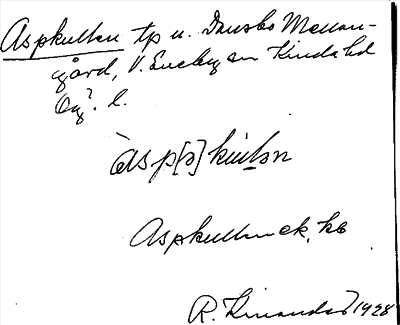 Aspkullen tp u. Dansbo Mellan-
gård, V. Eneby sn Kinda hd
Ög. l.
àsp[ə]kulən
Aspkullen ek. kb
R. Kinander 1928